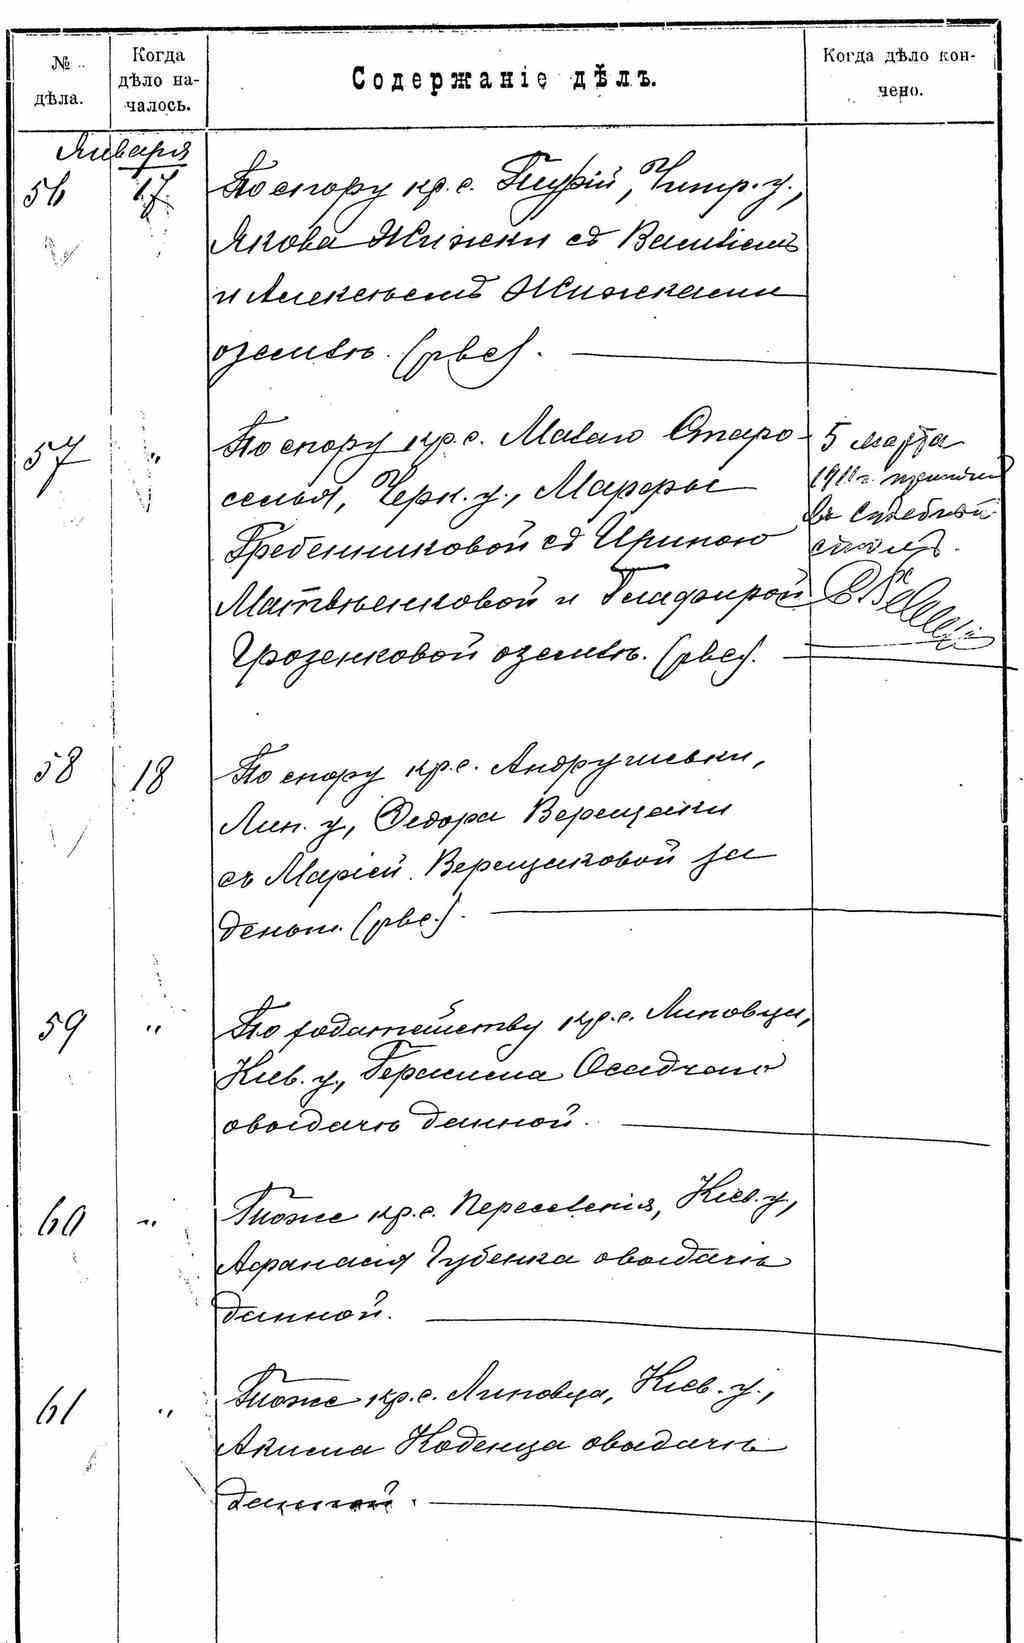 № дѣла.
Когда дѣло на-
чалось.
Содержаніе дѣлъ.
Когда дѣло кон-
чено.
Января
56
17
По спору кр. с. Чигир. у.,
Якова Жижки съ Василіемъ
и Алексѣемъ Жижками
о землѣ. (рвс).
57
"
По спору кр. с. Малаго Старо-
селья, Черк. у., Марфы
Гребенниковой съ Ириною
Матвѣенковой и Глафирой
Грозенковой о землѣ. (рвс).
5 марта
1911 г.
въ судебный
столъ.
58
18
По спору кр. с. Андрушевки,
Лип. у., Федора Верещаки
съ Маріей Верещаковой за
деньги. (рвс).
59
"
По ходатайству кр. с. Липовци,
Кіев. у., Герасима Осадчаго
о выдачѣ данной.
60
"
Тоже кр. с. Переселенія, Кіев. у.,
Афанасія Губенка о выдачѣ
данной.
61
"
Тоже кр. с. Липовца, Кіев. у.,
Акима Коденца о выдачѣ
данной.